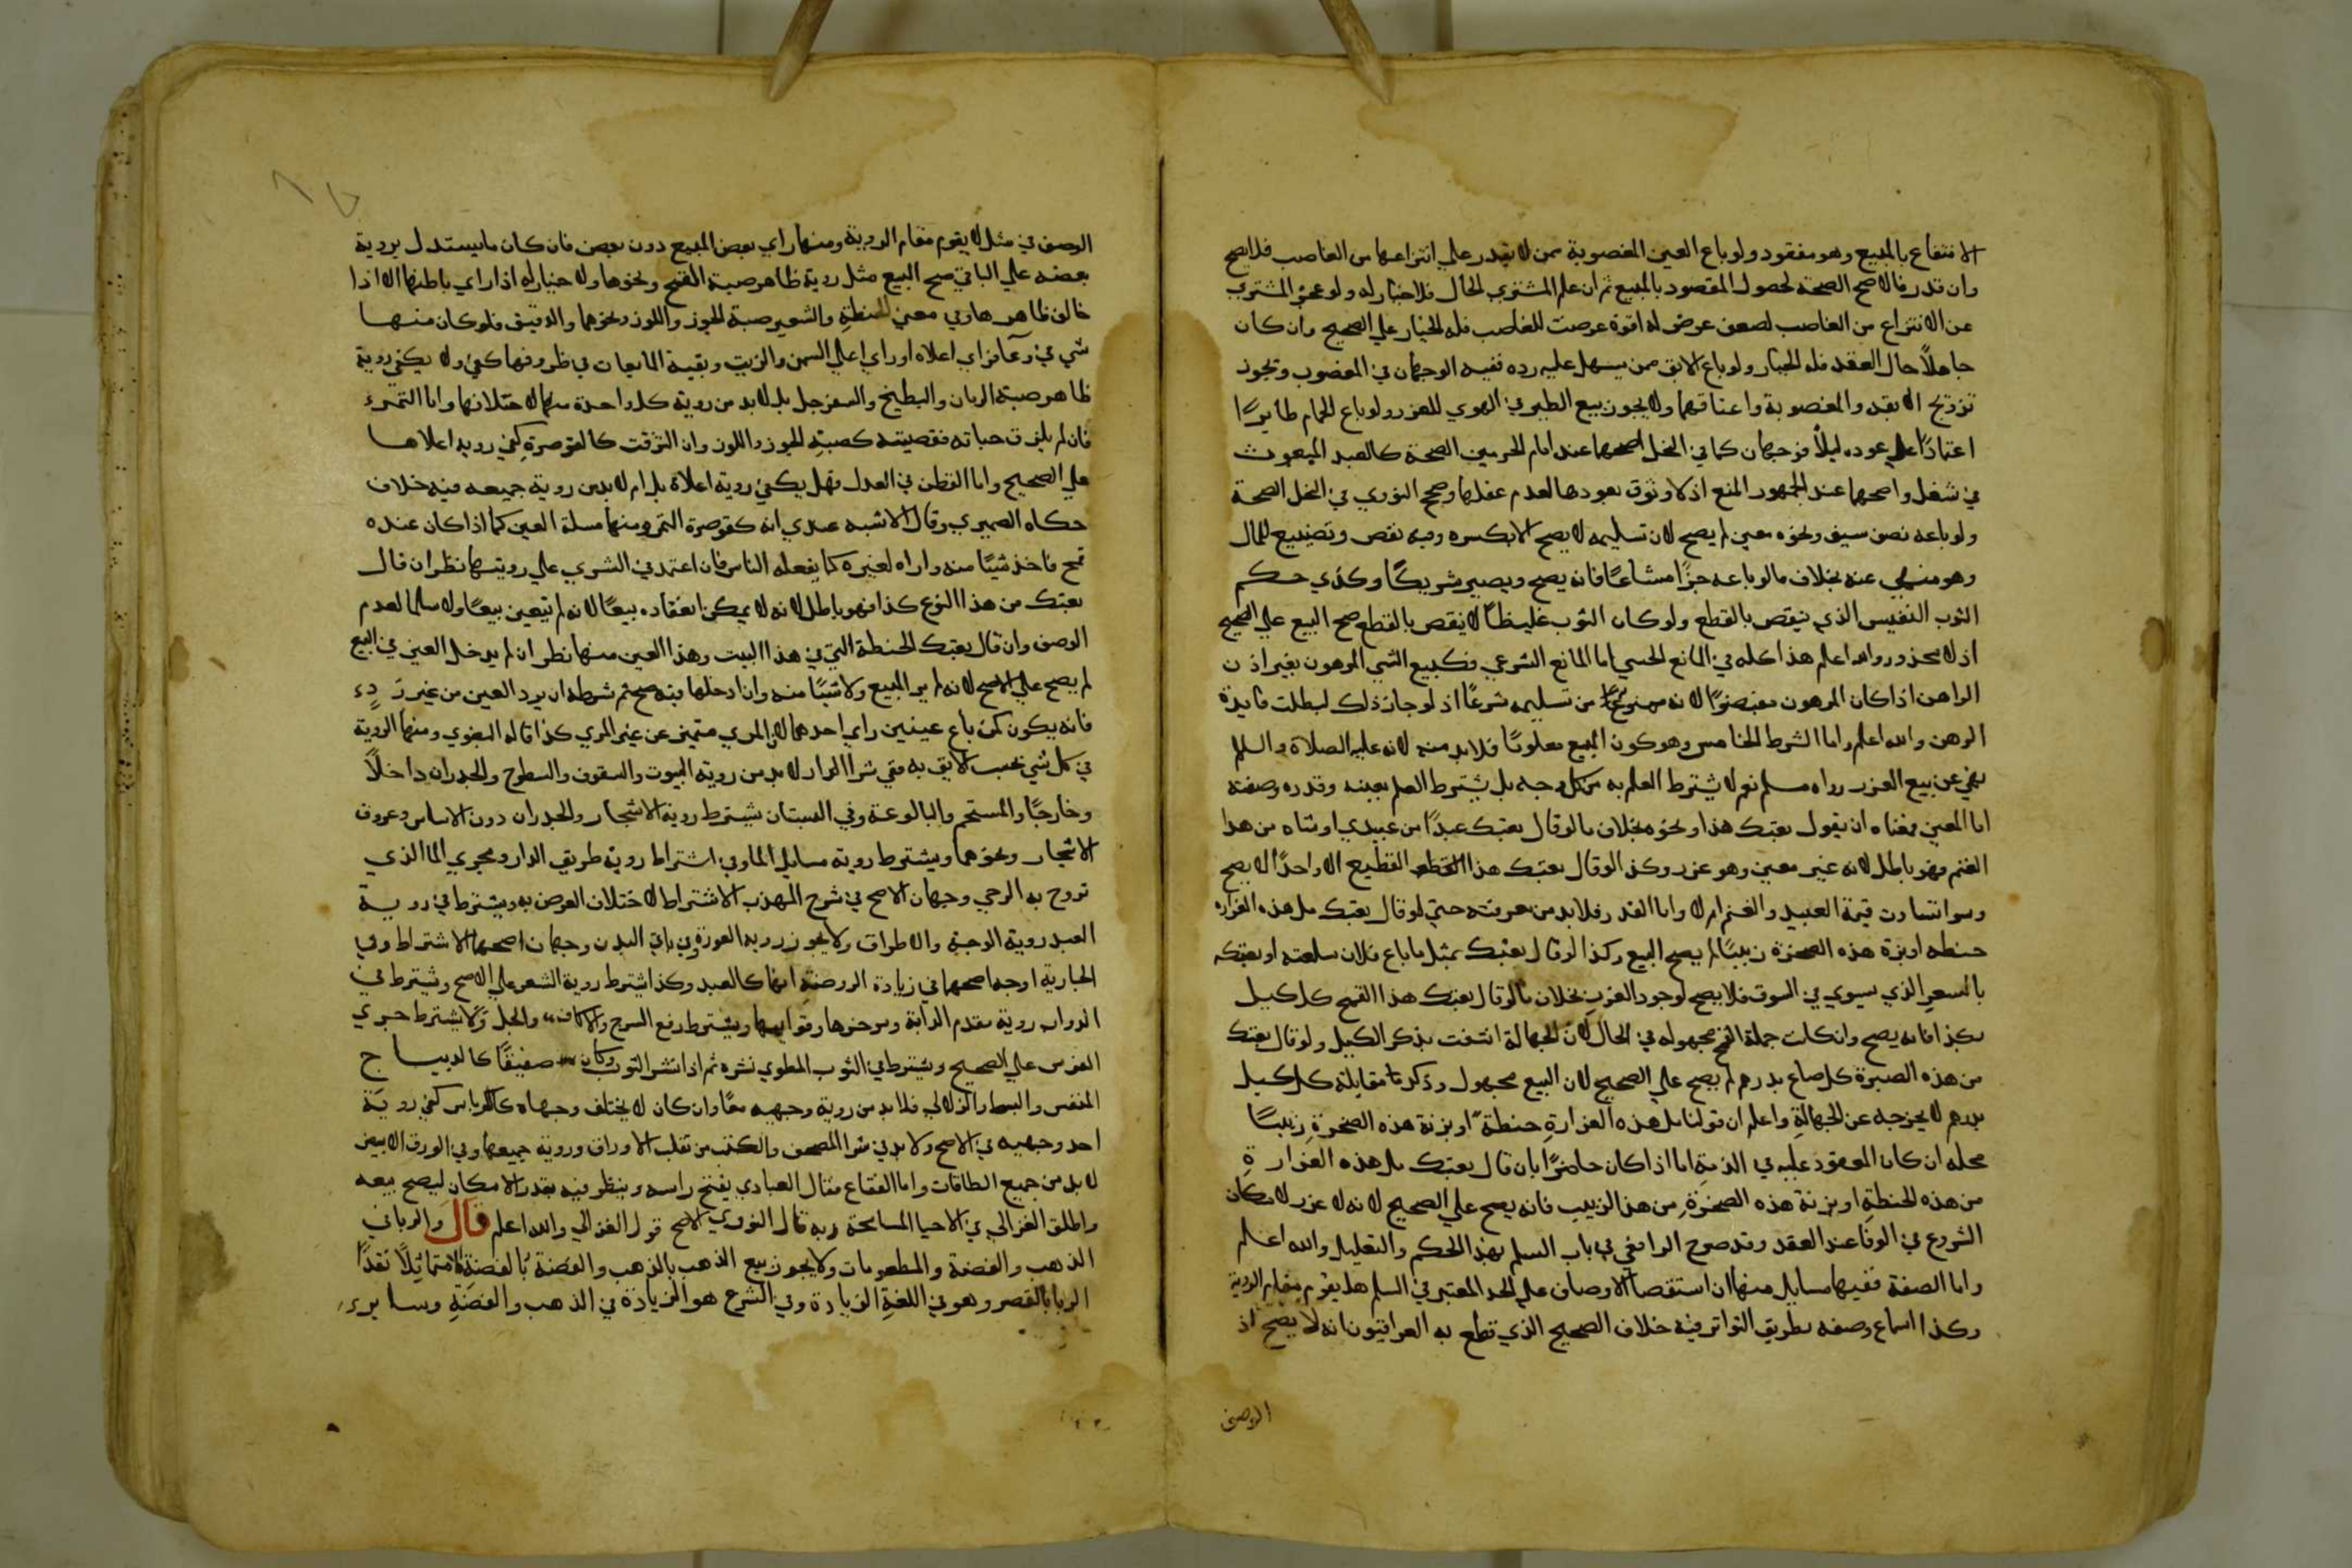 الانتفاع بالمبيع وهو مفقود ولو باع العين المغصوبة ممن لا يقدر علي انتزاعها من الغاصب فلا يصح
وان قدر فالاصح الصحة لحصول المقصود بالمبيع ثم ان علم المشتري الحال فلا خيار له ولو عجز المشتري
عن الانتزاع من الغاصب لضعف عرض له او قوة عرضت للغاصب فله الخيار علي الصحيح وان كان
جاهلاً حال العقد فله الخيار ولو باع الابق ممن يسهل عليه رده ففيه الوجهان في المغصوب ويجوز
تزويج الابقه والمغصوبة واعتاقهما ولا يجوز بيع الطير في الهوي للغرر ولو باع الحمام طايرًا
اعتمادًا علي عوده ليلاً فوجهان كما في النحل اصحهما عند امام الحرمين الصحة كالعبد المبعوث
في شغل واصحهما عند الجمهور المنع اذ لا وثوق بعودها لعدم عقلها وصحح النووي في النحل الصحة
ولو باعه نصف سيف ونحوه معين لم يصح لان تسليمه لا يصح الا بكسره وفيه نقص وتضييع للمال
وهو منهي عنه بخلاف ما لو باعه جزًا مشاعًا فانه يصح ويصير شريكًا وكذي حكم
الثوب النفيس الذي ينقص بالقطع ولو كان الثوب غليظًا لا ينقص بالقطع صح البيع علي الصحيح
اذ لا محذور والله اعلم هذا كله في المانع الحسي اما المانع الشرعي فكبيع الشي المرهون بغير اذن
الراهن اذا كان المرهون مقبضوًا لانه ممنوع من تسليمه شرعًا اذ لو جاز ذلك لبطلت فايدة
الرهن والله اعلم واما الشرط الخامس وهو كون المبيع معلومًا فلا بد منه لانه عليه الصلاة والسلم
نهي عن بيع الغرر رواه مسلم نعم لا يشترط العلم به من كل وجه بل يشترط العلم بعينه وقدره وصفته
اما المعين فمعناه ان يقول بعتك هذا ونحوه بخلاف ما لو قال بعتك عبدًا من عبيدي او شاه من هذا
الغنم فهو باطل لانه غير معين وهو غرر وكذ الو قال بعتك هذا القطيع الا واحدًا لا يصح
وسوا تساوت قيمة العبيد والغنم ام لا واما القدر فلا بد من معرفته حتي لو قال بعتك مل هذه الغراره
حنطه او بزنة هذه الصخرة زبيبًا لم يصح البيع وكذا لو قال بعتك بمثل ما باع فلان سلعته او بعتكه
بالسعر الذي يسوي في السوق فلا يصح لوجود الغرر بخلاف ما لو قال بعتك هذا القمح كل كيل
بكذا فانه يصح وان كانت جملة القمح مجهوله في الحال لان الجهالة انتفت بذكر الكيل ولو قال بعتك
من هذه الصبرة كل صاع بدرهم لم يصح علي الصحيح لان البيع مجهول وذكرنا مقابلة كل كيل
بدرهم لا يخرجه عن الجهالة واعلم ان قولنا مل هذه الغرارة حنطة او بزنة هذه الصخرة زبيبًا
محله ان كان المعقود عليه في الذمة اما اذا كان حاضرًا بان قال بعتك مل هذه الغرارة
من هذه الحنطة او بزنة هذه الصخرة من هذا الزبيب فانه يصح علي الصحيح لانه لا غرر لامكان
الشروع في الوفا عند العقد وقد صرح الرافعي في باب السلم بهذا الحكم والتعليل والله اعلم
واما الصفة ففيها مسايل منها ان استقصا الاوصاف علي الحد المعتبر في السلم هل يقوم مقام الروية
وكذا اسماع وصفه بطريق التواتر فيه خلاف الصحيح الذي قطع به العراقيون انه لا يصح اذ
الوصف
الوصف في مثل لا يقوم مقام الروية ومنها راي بعض المبيع دون بعض فان كان ما يستدل بروية
بعضه علي الباقي صح البيع مثل روية ظاهر صبة القمح ونحوها ولا خيار له اذا راي باطنها الا اذا
خالف ظاهرها وفي معني الحنطة والشعير صبة الجوز واللوز ونحوهما والدقيق فلو كان منها
شي في وعآ فراي اعلاه او راي اعلي السمن والزيت وبقية المايعات في ظروفها كفي ولا يكفي روية
ظاهر صبة الرمان والبطيخ والسفرجل بل لا بد من روية كل واحدة منها لاختلافها واما التمر
فان لم يلزق حباته فقصيته كصبة الجوز واللوز وان التزقت كالقوصرة كفي رويه اعلاها
علي الصحيح واما القطن في العدل فهل يكفي روية اعلاه بل ام لا بد من روية جميعه فيه خلاف
حكاه الصيمري وقال الاشبه عندي انه كقوصرة التمر ومنها مسلة العين كما اذا كان عنده
قمح فاخذ شيًا منه واراه لغيره كما يفعله الناس فان اعتمد في الشري علي رويتها نظر ان قال
بعتك من هذا النوع كذا فهو باطل لانه لا يمكن انعقاده بيعًا لانه لم يتعين بيعًا ولا سلما لعدم
الوصف وان قال بعتك الحنطة التي في هذا البيت وهذا العين منها نظر ان لم يدخل العين في البيع
لم يصح علي الاصح لانه لم ير المبيع ولا شيًا منه وان ادخلها فيه صح ثم شرطه ان يرد العين من غير ردء
فانه يكون كمن باع عينين راي احدهما لان المري متميز عن غير المري كذا قاله البغوي ومنها الروية
في كل شي بحسب لايق به ففي شرا الدار لا بد من روية البيوت والسقوف والسطوح والجدران داخلاً
وخارجًا والمستحم والبالوعة وفي البستان يشترط روية الاشجار والجدران دون الاساس وعروق
الاشجار ونحوهما ويشترط روية مسايل الما وفي اشتراط روية طريق الدار ومجري الما الذي
تروح به الرحي وجهان الاصح في شرح المهذب الاشتراط لاختلاف الغرض به ويشترط في روية
العبد روية الوجه والاطراف ولا يجوز رويه العورة وفي باقي البدن وجهان اصحهما الاشتراط وفي
الجارية اوجه اصحها في زيادة الروضة انها كالعبد وكذا يشترط روية الشعر علي الاصح ويشترط في
الدواب روية مقدم الدابة وموخرها وقوايمها ويشترط رفع السرج والاكاف والجل ولا يشترط جري
الفرس علي الصحيح ويشترط في الثوب المطوي نشره ثم اذا نشر الثوب وكان صفيقًا كالديباج
المنقس والبسط والزلالي فلا بد من روية وجهيه معًا وان كان لا يختلف وجهاه كالكرباس كفي روية
احد وجهيه في الاصح ولا بد في شرا المصحف والكتب من تقلب الاوراق وروية جميعها وفي الورق الابيض
لا بد من جميع الطاقات واما الفقاع فقال العبادي يفتح راسه وينظر فيه بقدر الامكان ليصح بيعه
واطلق الغزالي في الاحيا المسامحة وبه قال النووي الاصح قول الغزالي والله اعلم قال والربا في
الذهب والفضة والمطعومات ولا يجوز بيع الذهب بالذهب والفضة بالفضة الا متماثلاً نقدًا
الربا بالقصر وهو في اللغة الزيادة وفي الشرع هو الزيادة في الذهب والفضة وساير